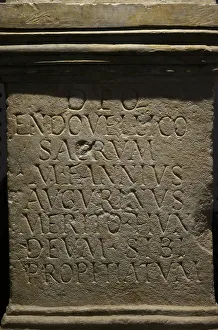 DEO
ENDOVELLICO
SACRVM
M FANNIVS
AVGVRINVS
MERITO HVN
DEVM SIBI
PROPITIATVM